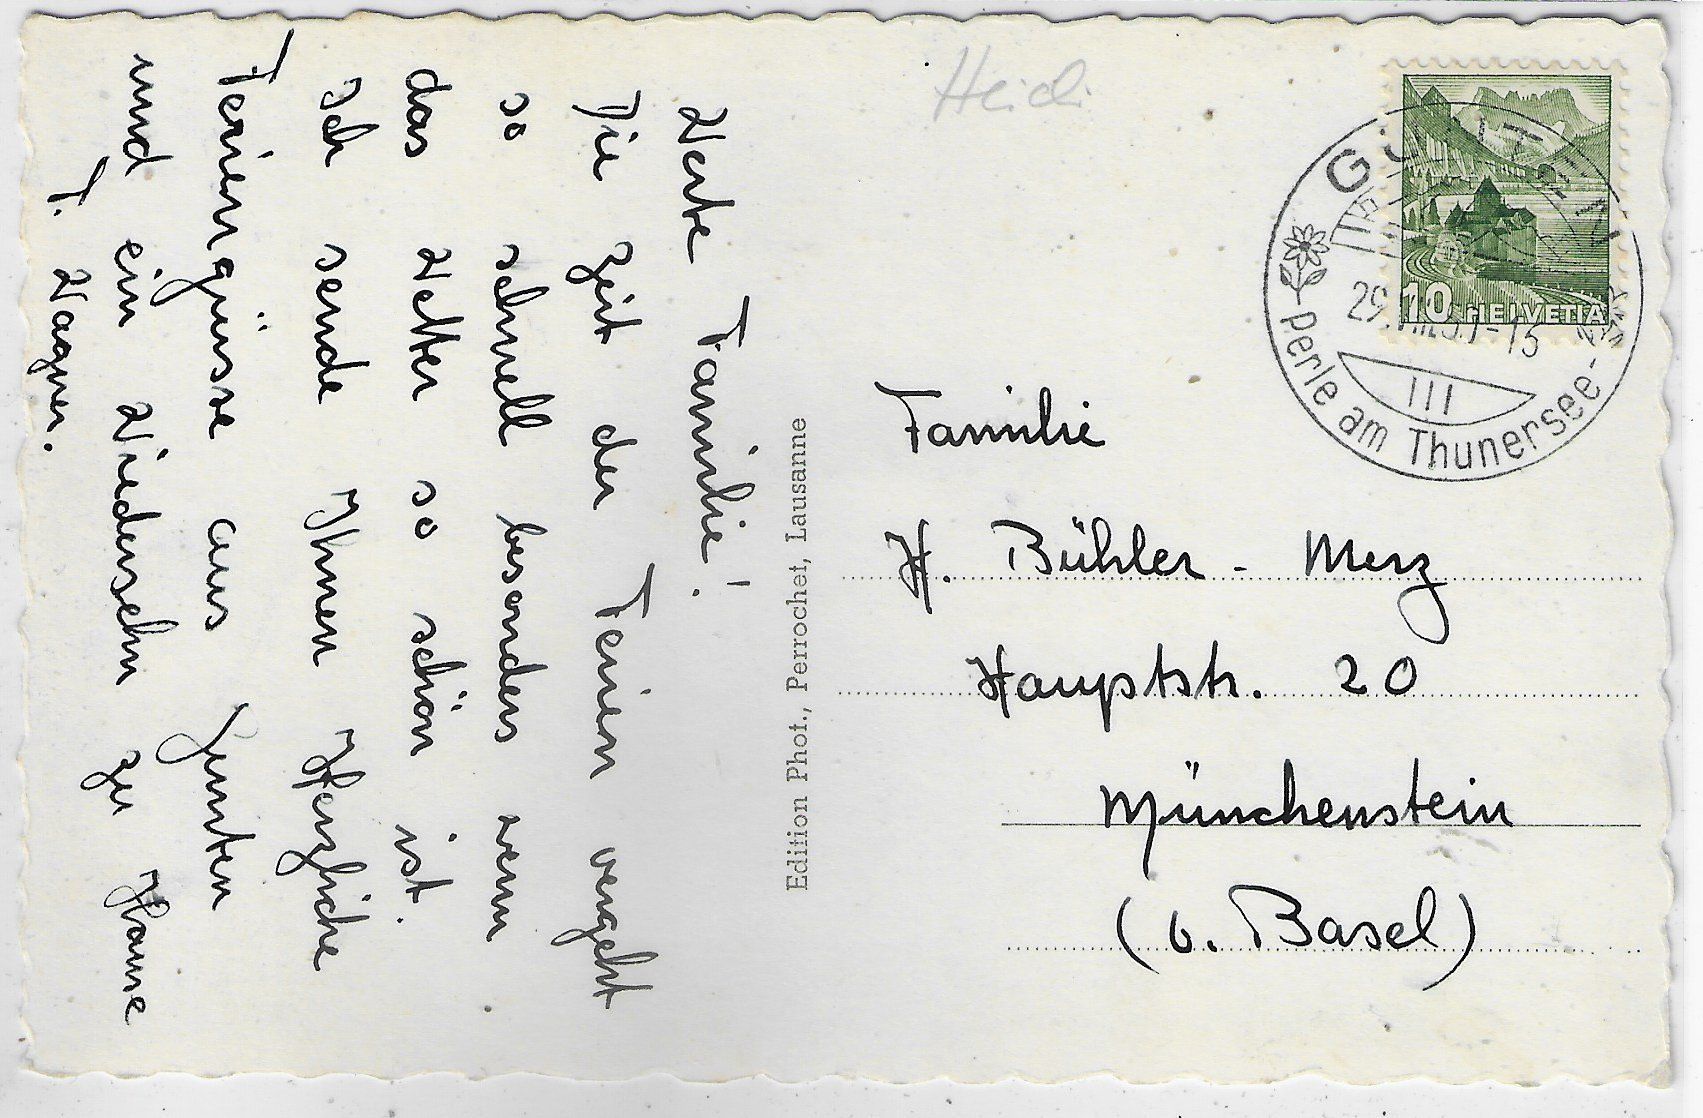 Werte Familie!
Die Zeit der Ferien vergeht
so schnell besonders wenn
das Wetter so schön ist.
Ich sende Ihnen Herzliche
Feriengrüsse aus Gunten
und ein Wiedersehn zu Hause
T. Wagner.
Edition Phot., Perrochet, Lausanne
Heidi
10 HELVETIA
Perle am Thunersee
Familie
H. Bühler - Merz
Hauptstr. 20
Münchenstein
(b. Basel)